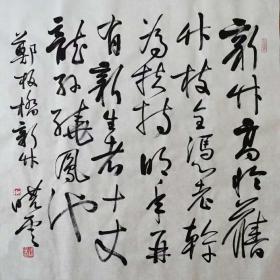 新竹高於舊
竹枝全馮老幹
為扶持明年再
有新生者十丈
龍孫繞鳳池
鄭板橋新竹 曉雲